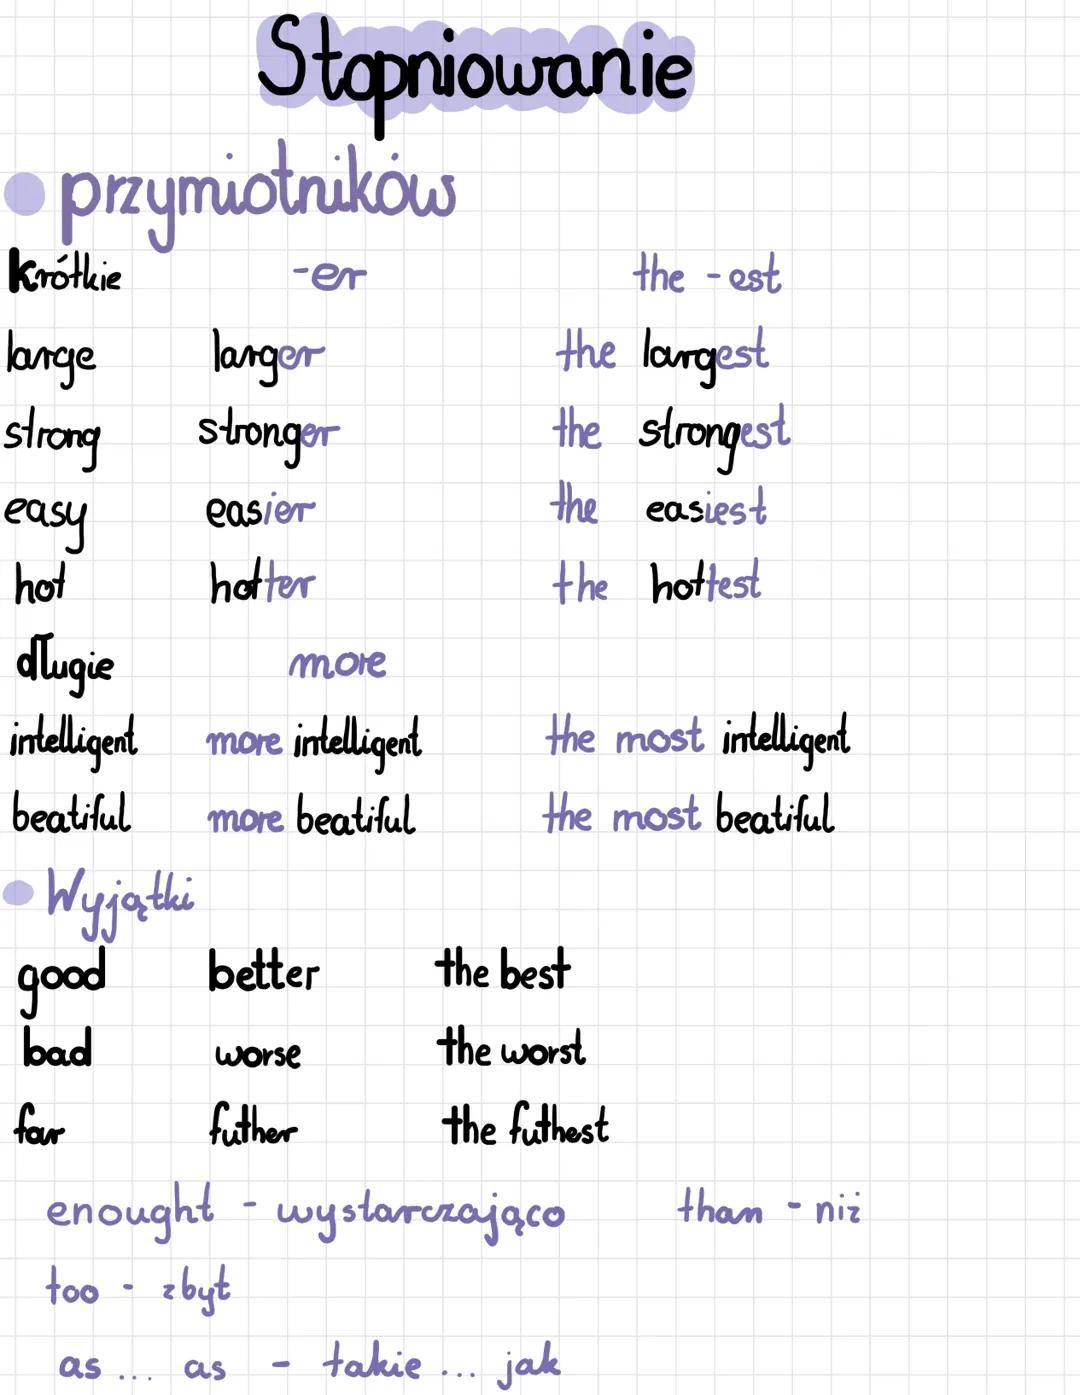 Stopniowanie
przymiotników
krótkie -er the -est
large larger the largest
strong stronger the strongest
easy easier the easiest
hot hotter the hottest
długie more
intelligent more intelligent the most intelligent
beatiful more beatiful the most beatiful
Wyjątki
good better the best
bad worse the worst
far futher the futhest
enought - wystarczająco than - niż
too - zbyt
as ... as - takie ... jak